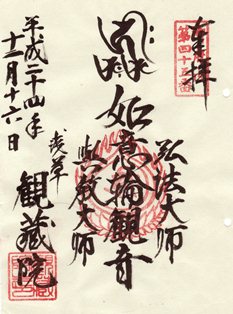 奉拝
第四十五番
弘法大師
如意輪観音
興教大師
浅草
観蔵院
平成二十四年
十二月十六日